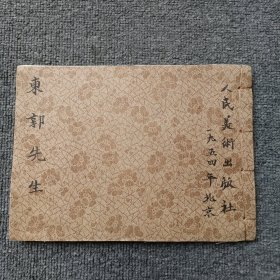 人民美術出版社
一九五四年 北京
東郭先生